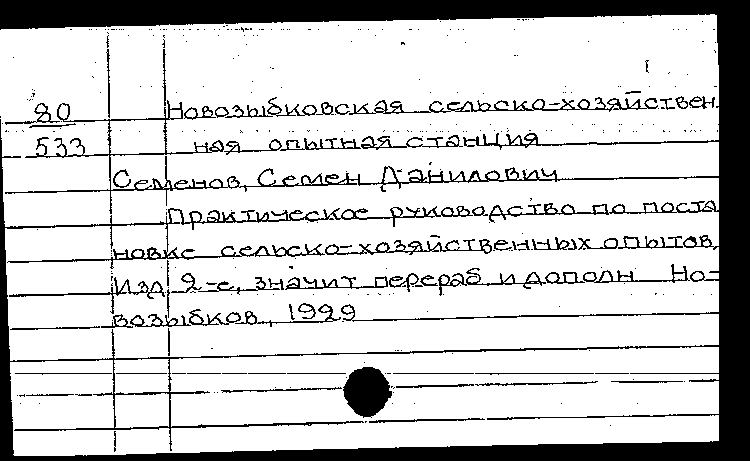 80 Новозыбковская сельско-хозяйствен
533 ная опытная станция
Семенов, Семен Данилович
Практическое руководство по поста
новке сельско-хозяйственных опытов,
Изд 2-е, значит перераб и дополн Но-
возыбков, 1929